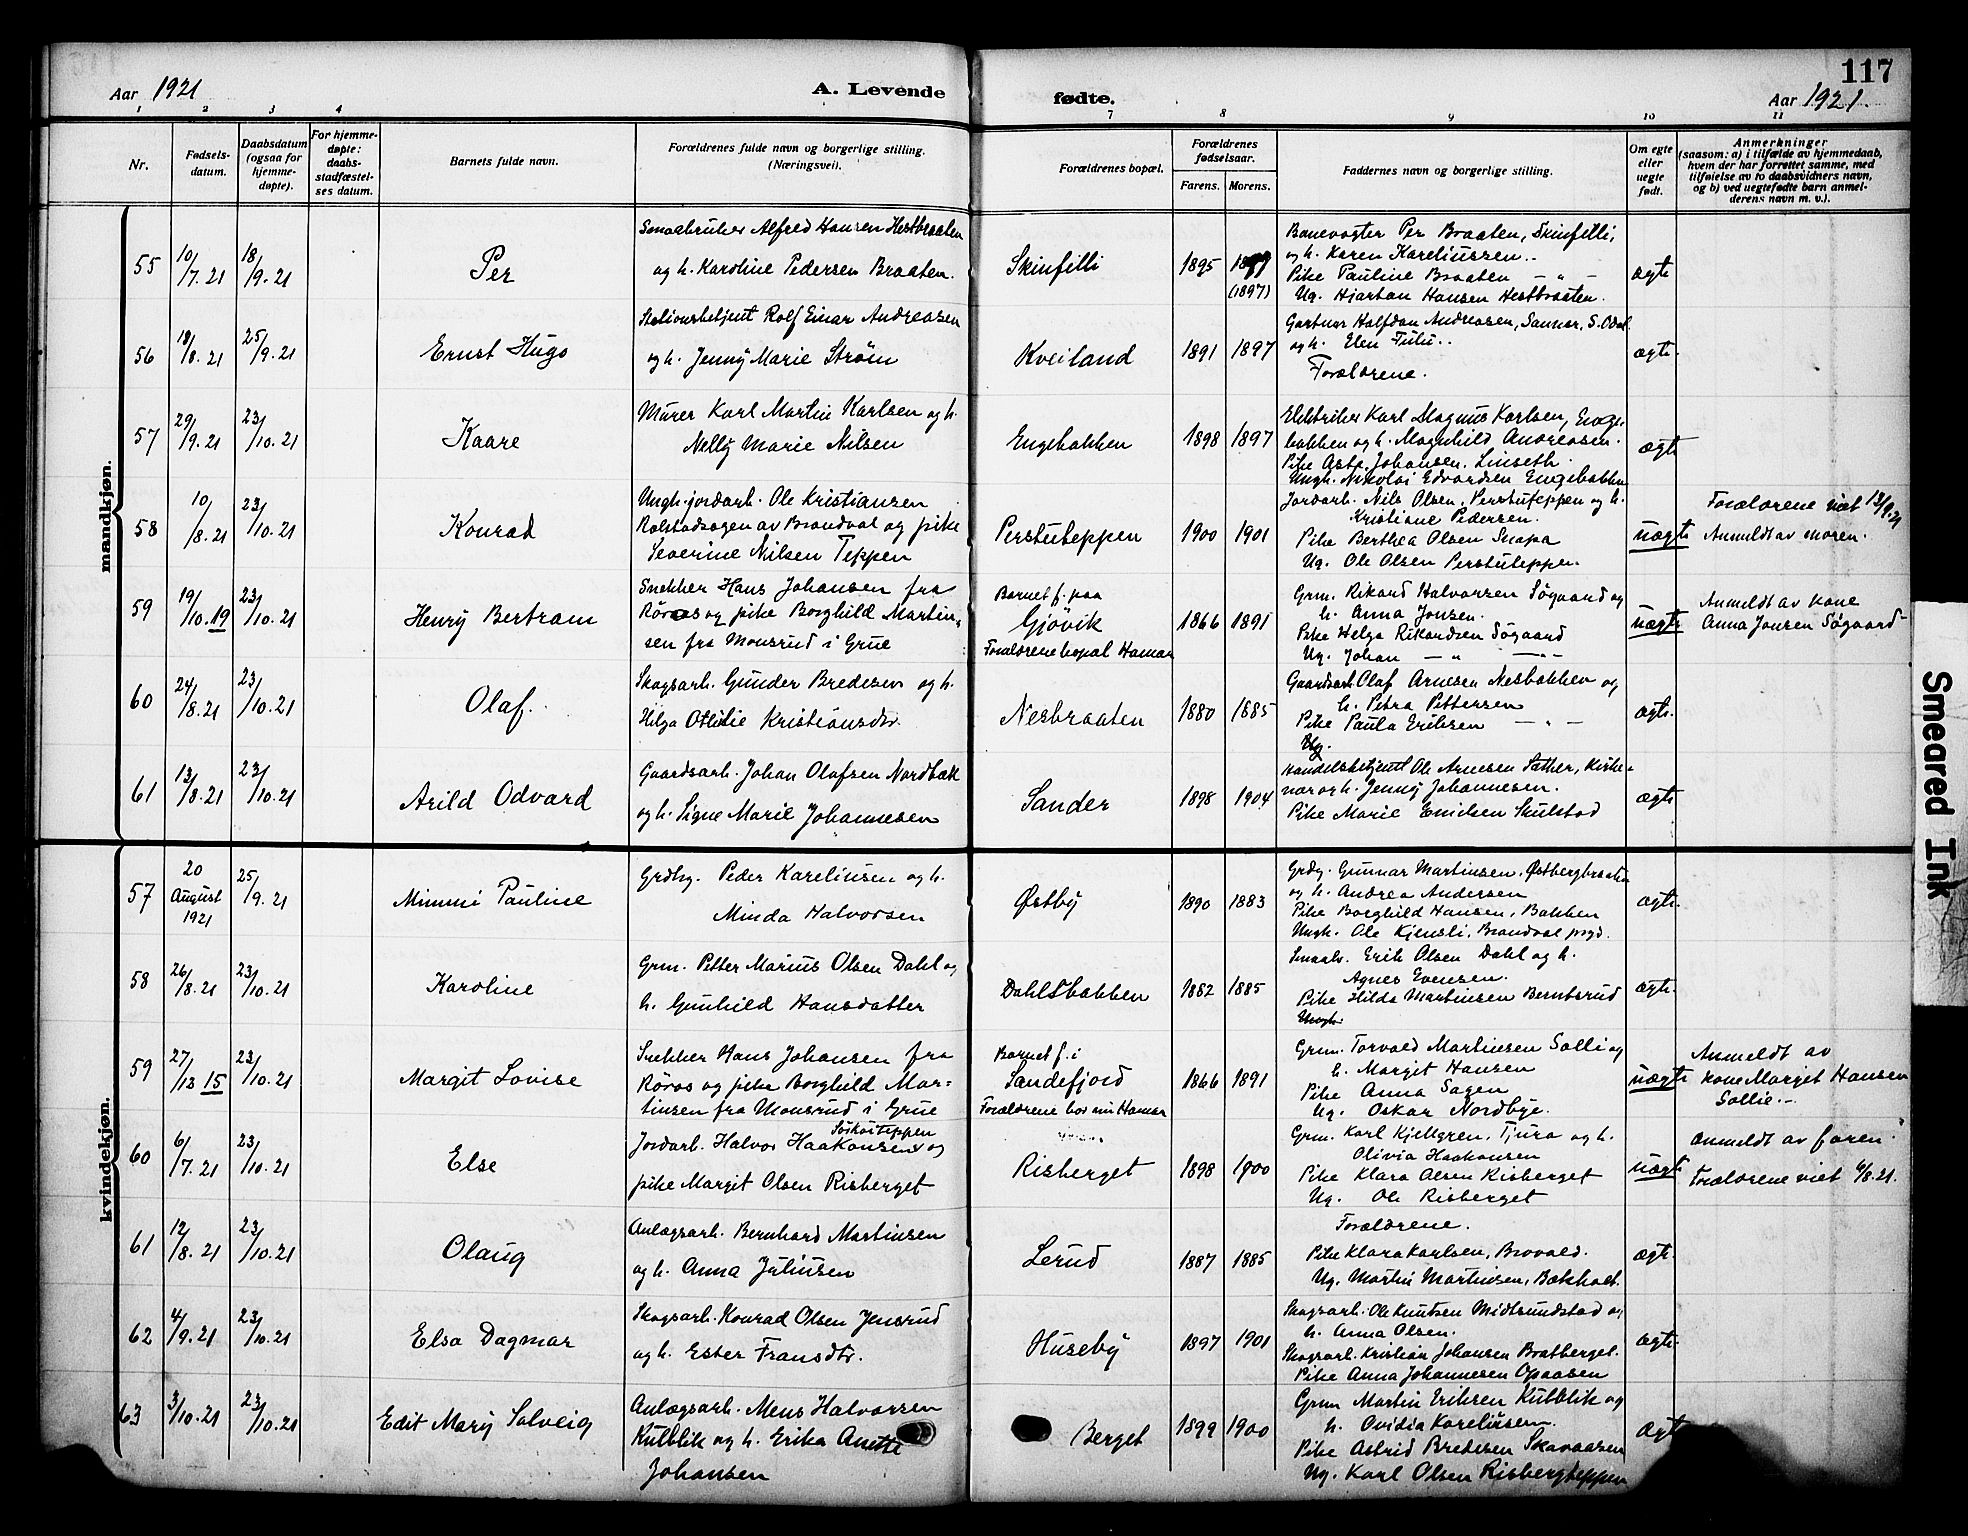 117
Aar 1921
A. Levende
fødte.
Aar 1921.
1 2 3 4 7 8 9 10 11
Nr.
Fødsels-
datum.
Daabsdatum
(ogsaa for
hjemme-
døpte).
For hjemme-
døpte:
daabs-
stadfæstel-
ses datum.
Barnets fulde navn.
Forældrenes fulde navn og borgerlige stilling.
(Næringsvei).
Forældrenes bopæl.
Forældrenes
fødselsaar.
Farens. Morens.
Faddernes navn og borgerlige stilling.
Om egte
eller
uegte
født.
Anmerkninger
(saasom: a) i tilfælde av hjemmedaab,
hvem der har forrettet samme, med
tilføielse av to daabsvidners navn,
og b) ved uegtefødte barn anmel-
derens navn m. v.).
mandkjøn.
55
10/7. 21
18/9. 21
Per
Smaabruker Alfred Hansen Hestbraaten
og h. Karoline Pedersen Braaten.
Skinfilli
1895
1897
(1897)
Banevogter Per Braaten, Skinfilli,
og h. Karen Kareliussen..
Pike Pauline Braaten — " —
Ug. Hjartan Hansen Hestbraaten.
ægte
56
18/8. 21
25/9. 21
Ernst Hugo
Stationsbetjent Rolf Einar Andreasen
og h. Jenny Marie Strøm
Kveiland
1891 1897
Gartner Halfdan Andreasen, Sannar, S. Odal
og h. Elen Fulu..
Forældrene.
ægte.
57
29/9. 21
23/10. 21
Kaare
Murer Karl Martin Karlsen og h.
Nelly Marie Nilsen
Engebakken
1898 1897
Elektriker Karl Magnus Karlsen, Enge-
bakken og h. Magnhild Andreasen.
Pike Asta Johansen. Linseth.
Ungk. Nikolai Edvardsen Engebakken
ægte
58
10/8. 21
23/10. 21
Konrad
Ungk. jordarb. Ole Kristiansen
Rolstadsagen av Brandval og pike
Severine Nilsen Teppen
Perstuteppen
1900 1901
Jordarb. Nils Olsen, Perstuteppen og h.
Kristiane Pedersen.
Pike Berthea Olsen Snapa
Ug. Ole Olsen Perstuteppen.
uægte
Forældrene viet 13/9.21
Anmeldt av moren.
59
19/10. 19
23/10. 21
Henry Bertram
Snekker Hans Johansen fra
Röros og pike Borghild Martin-
sen fra Monsrud i Grue
Barnet f. paa
Gjövik
Forældrene bopal Hamar
1866 1891
Grm. Rikard Halvorsen Søgaard og
h. Anna Jonsen.
Pike Helga Rikardsen Søgaard
Ug. Johan — " — — " —
uægte
Anmeldt av kone
Anna Jonsen Søgaard
60
24/8. 21
23/10. 21
Olaf.
Skogsarb. Gunder Bredesen og h.
Helga Otilie Kristiansdtr.
Nesbraaten
1880 1885
Gaardsarb Olaf Arnesen Nesbakken og
h. Petra Pettersen
Pike Paula Eriksen — " —
Ug.
ægte.
61
13/8. 21
23/10. 21
Arild Odvard
Gaardsarb. Johan Olafsen Nordbæk
og h. Signe Marie Johannesen
Sander
1898 1904
Handelsbetjent Ole Arnesen Sæther, Kirke-
nær og h. Jenny Johannesen.
Pike Marie Emilsen Skulstad
ægte
kvindekjøn.
57
20
August
1921
25/9. 21
Mimmi Pauline
Grdbg. Peder Kareliusen og h.
Minda Halvorsen
Østby
1890 1883
Grdbg. Gunnar Martinsen. Østbergbraaten
og h. Andrea Andersen
Pike Borghild Hansen, Bakken
Ungk. Ole Kjensli, Brandval prgd.
ægte.
58
26/8. 21
23/10. 21
Karoline
Grm. Petter Marius Olsen Dahl og
h. Gunhild Hansdatter
Dahlsbakken
1882 1885
Smaab. Erik Olsen Dahl og h.
Agnes Evensen.
Pike Hilda Martinsen Berntsrud
Ungk.
ægte.
59
27/13 15
23/10. 21
Margit Lovise
Snekker Hans Johansen fra
Röros og pike Borghild Mar-
tinsen fra Monsrud i Grue
Barnet f. i
Sandefjord
Forældrene bor nu Hamar
1866 1891
Grm. Torvald Martinsen Solli og
h. Margit Hansen
Pike Anna Sagen
Ug. Oskar Nordbye.
uægte
Anmeldt av
kone Margit Hansen
Sollie.-
60
6/7. 21
23/10. 21
Else
Jordarb. Halvor Haakonsen og
pike Margit Olsen Risberget
Risberget
1898 1900
Grm. Karl Kjellgren, Tjura og h.
Olivia Haakonsen
Pike Klara Olsen Risberget
Ug. Ole Risberget
uægte
Anmeldt av faren.
Forældrene viet 6/8.21.
61
12/8. 21
23/10. 21
Olaug
Anlægsarb. Bernhard Martinsen
og h. Anna Juliusen
Lerud
1887 1885
Forældrene.
Pike Klara Karlsen, Brovold.
Ug. Martin Martinsen, Bækholt.
ægte.
62
4/9. 21
23/10. 21
Elsa Dagmar
Skogsarb. Konrad Olsen Jensrud
og h. Ester Fransdtr.
Huseby
1897 1901
Skogsarb. Ole Knutsen Midtsundstad og
h. Anna Olsen.
Skogsarb. Kristian Johansen Bratberget.
Pike Anna Johannesen Opaasen
ægte.
63
3/10. 21
23/10. 21
Edit Mary Solveig
Anlægsarb. Mens Halvorsen
Kulblik og h. Erika Anette
Johansen
Berget
1899 1900
Grm Martin Eriksen Kulblik og
h. Ovidia Kareliusen.
Pike Astrid Bredesen Skavaasen
Ug. Karl Olsen Risbergteppen
ægte
Smeared Ink